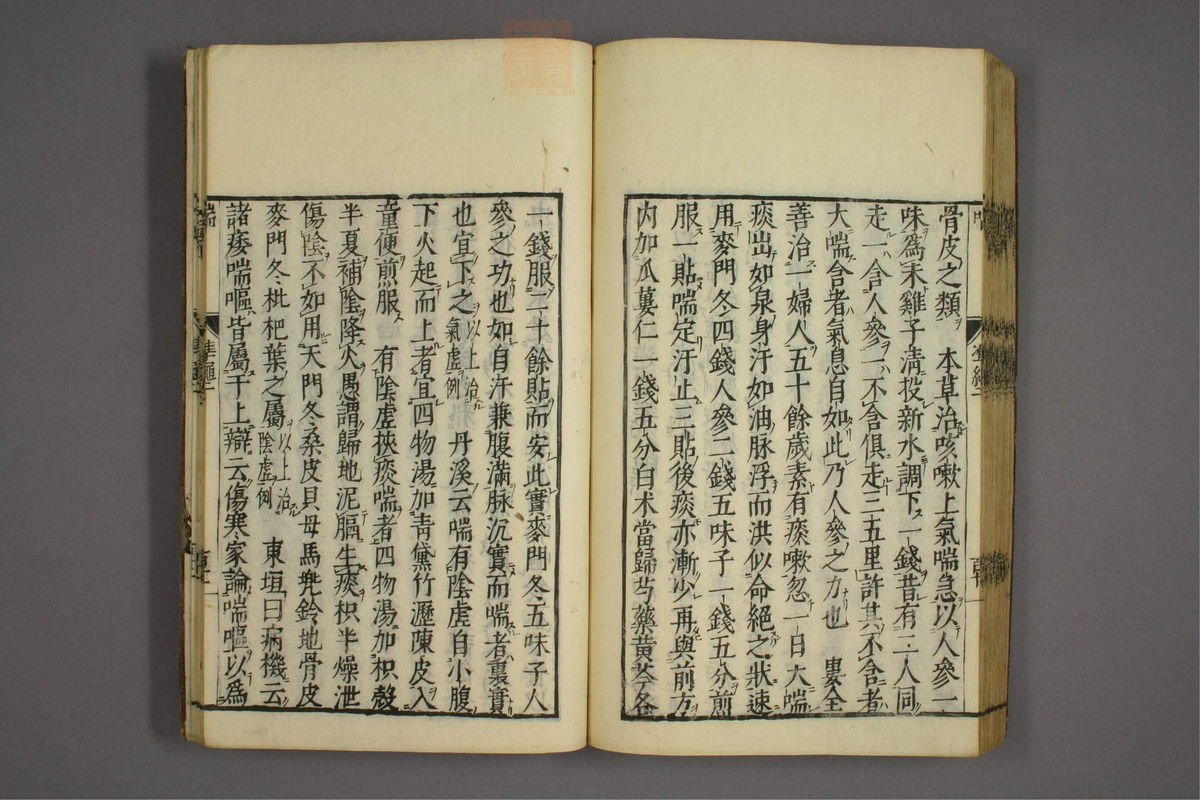 骨皮之類　本草治咳嗽上氣喘急以人參一
味為末雞子清投新水調下一錢昔有二人同
走一含人參一不含俱走三五里許其不含者
大喘含者氣息自如此乃人參之力也　婁全
善治一婦人五十餘歲素有痰嗽忽一日大喘
痰出如泉身汗如油脉浮而洪似命絕之狀速
用麥門冬四錢人參二錢五味子一錢五分煎
服一貼喘定汗止三貼後痰亦漸少再與前方
內加瓜蔞仁一錢五分白术當歸芍藥黃芩各
一錢服二十餘貼而安此實麥門冬五味子人
參之功也如自汗兼腹滿脉沉實而喘者裏實
也宜下之以上治氣虛例　丹溪云喘有陰虛自小腹
下火起而上者宜四物湯加青黛竹瀝陳皮入
童便煎服　有陰虛挾痰喘者四物湯加枳殼
半夏補陰降火愚謂歸地泥膈生痰枳半燥泄
傷陰不如用天門冬桑皮貝母馬兠鈴地骨皮
麥門冬枇杷葉之屬以上治陰虛例　東垣曰病機云
諸痿喘嘔皆屬于上辯云傷寒家論喘嘔以為
喘